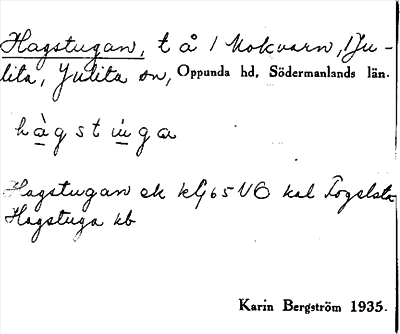 Hagstugan, t å 1 Mokvarn, 1 Ju-
lita, Julita sn, Oppunda hd, Södermanlands län.
hàgstùga
Hagstugan ek kG 65 VO kal Fogelsta
Hagstuga kb
Karin Bergström 1935.